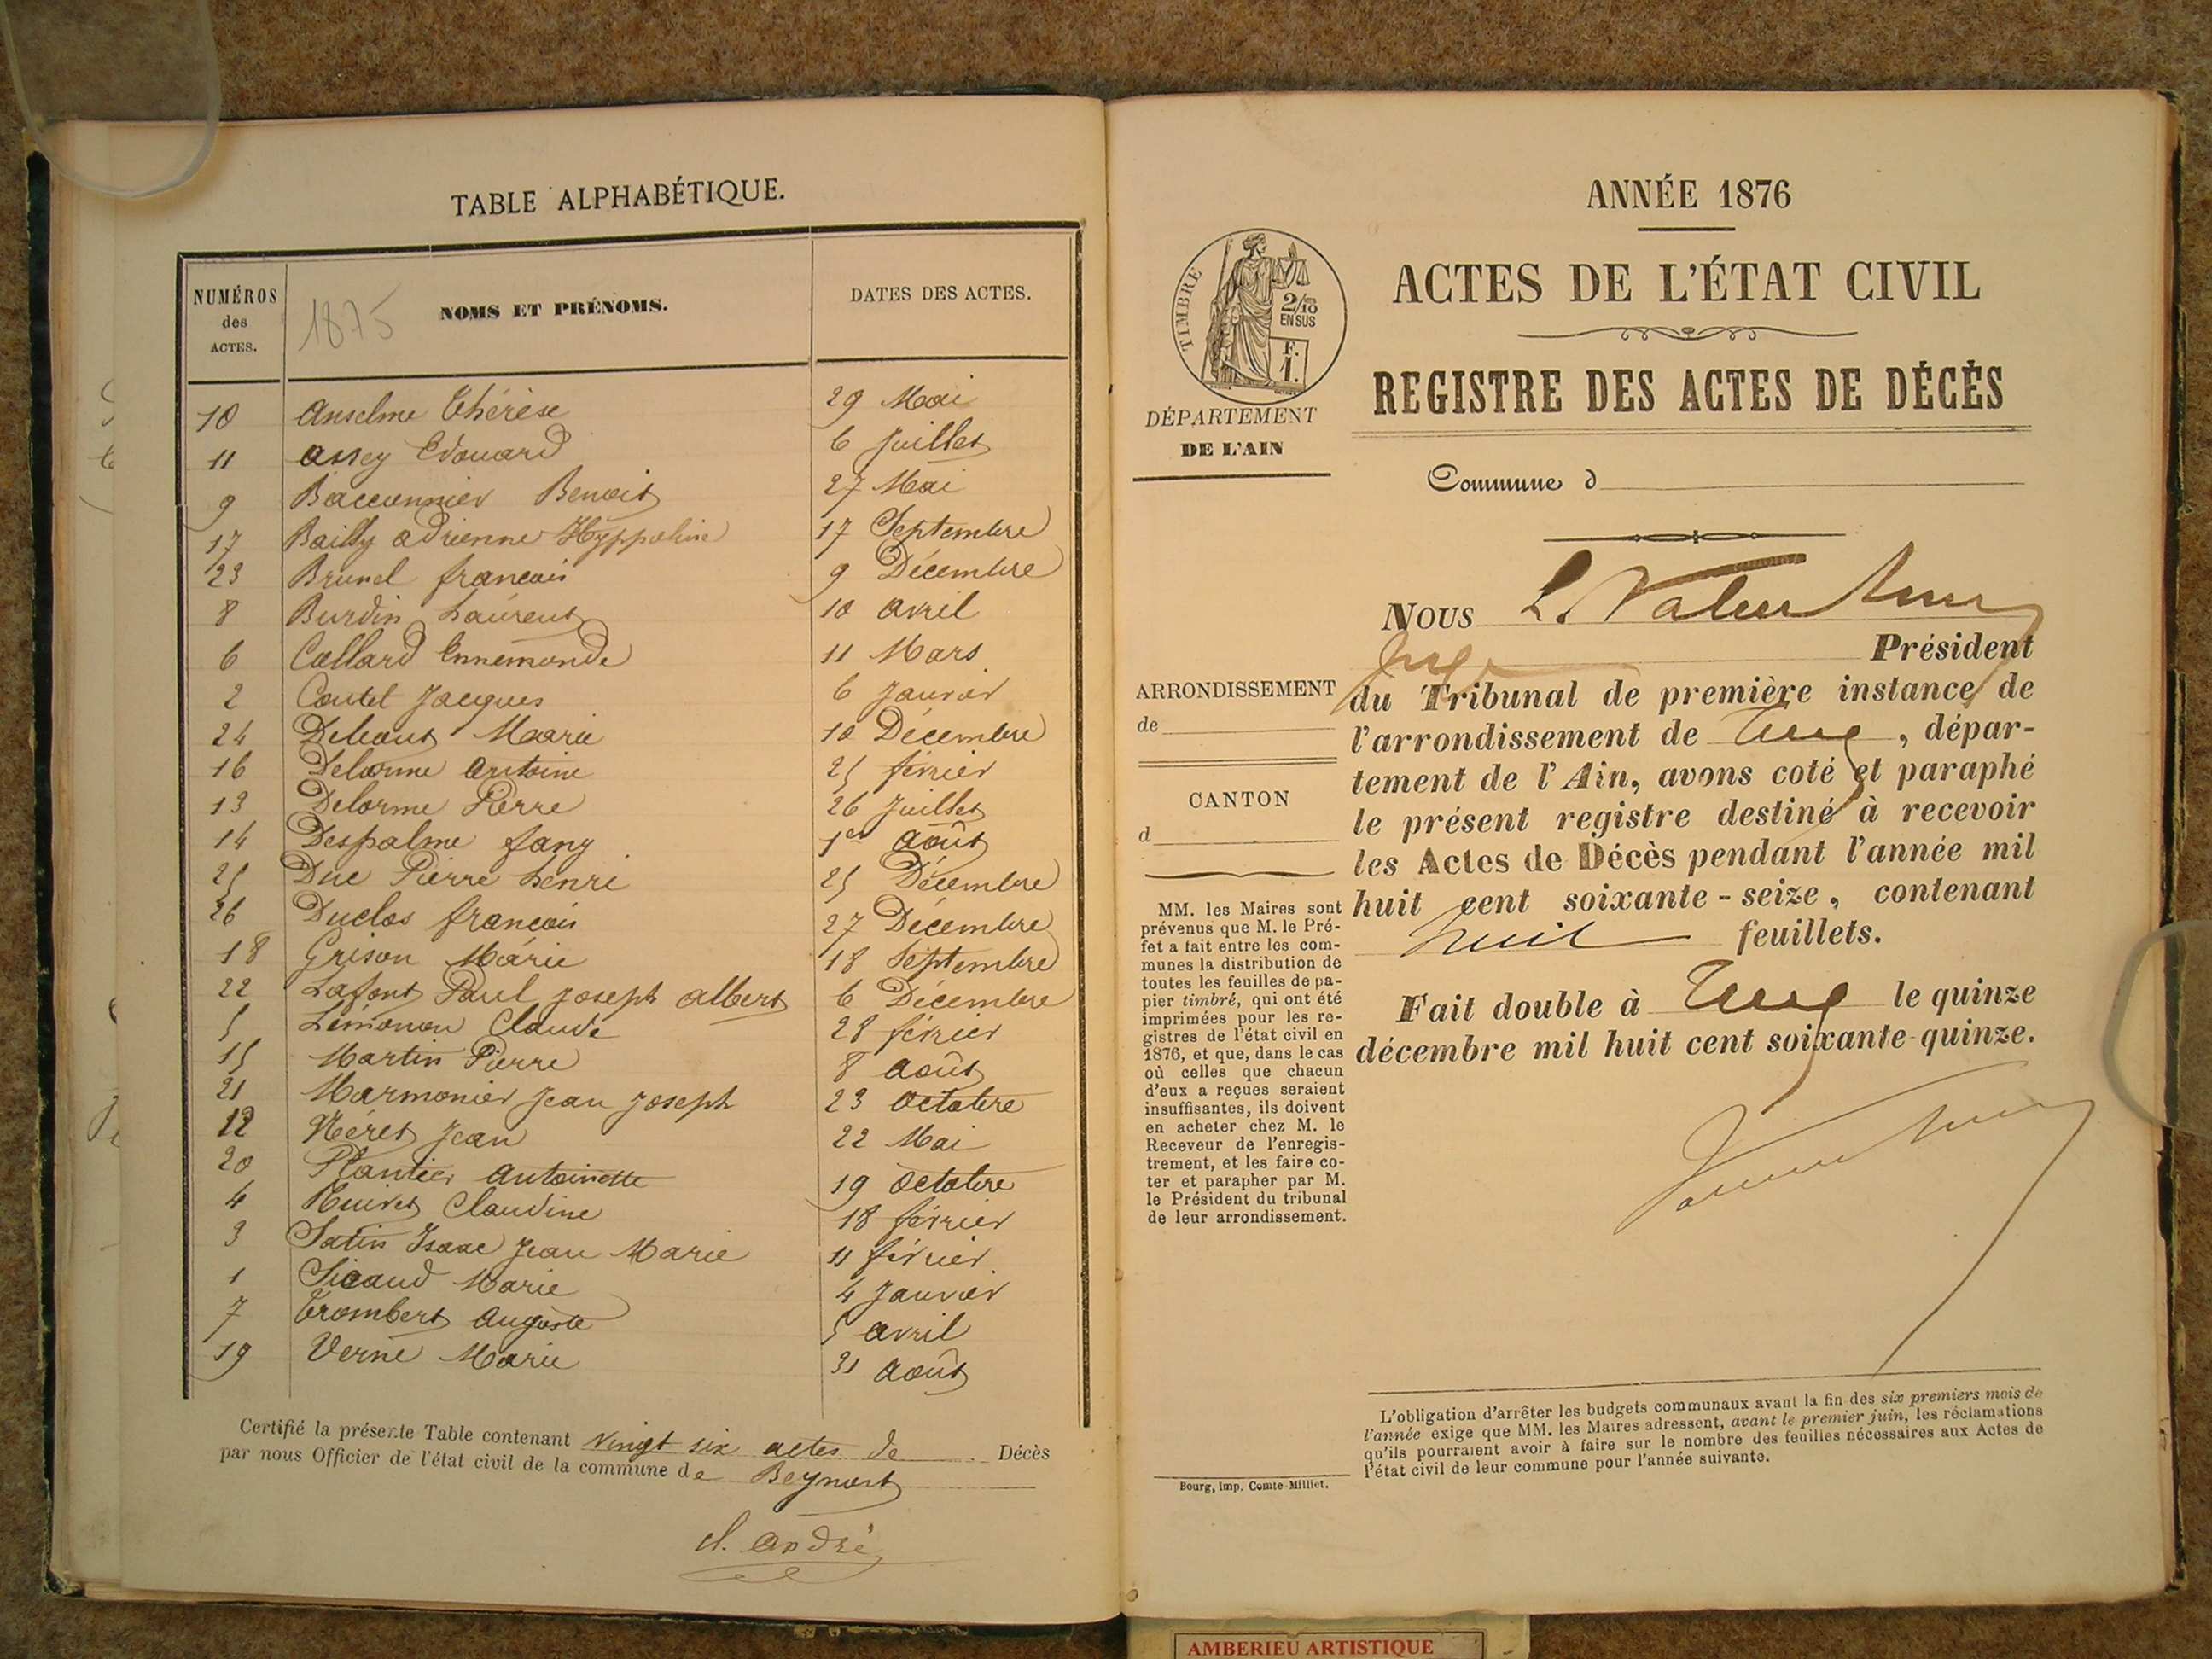 TABLE ALPHABÉTIQUE.
NUMÉROS des ACTES.
1875
NOMS ET PRÉNOMS.
DATES DES ACTES.
10 Anselme Thérèse 29 Mai
11 Assey Edouard 6 Juillet
9 Bacconnier Benoit 27 Mai
17 Bailly Adrienne Hyppoline 17 Septembre
23 Brunel françois 9 Décembre
8 Burdin Laurent 10 avril
6 Collard Ennemonde 11 Mars
2 Coutel Jacques 6 Janvier
24 Marie 10 Décembre
16 Delorme Antoine 25 février
13 Delorme Pierre 26 Juillet
14 Despalme fany 1er août
25 Duc Pierre henri 25 Décembre
26 Duclos françois 27 Décembre
18 Grison Marie 18 Septembre
22 Lafont Paul Joseph Albert 6 Décembre
5 Lémonon Claude 28 février
15 Martin Pierre 8 août
21 Marmonier Jean Joseph 23 Octobre
12 Néret Jean 22 Mai
20 Plantier Antoinette 19 Octobre
4 Claudine 18 février
3 Satin Isaac Jean Marie 11 février
1 Sicaud Marie 4 Janvier
7 Trombert Auguste 5 avril
19 Verne Marie 31 août
Certifié la présente Table contenant vingt six actes de Décès
par nous Officier de l'état civil de la commune de Beynost
cl. andré
ANNÉE 1876
ACTES DE L'ÉTAT CIVIL
REGISTRE DES ACTES DE DÉCÈS
TIMBRE
2/10
EN SUS
F.
1.
DÉPARTEMENT
DE L'AIN
Commune d
NOUS L.
Juge Président
ARRONDISSEMENT
de
CANTON
d
du Tribunal de première instance de
l'arrondissement de , dépar-
tement de l'Ain, avons coté et paraphé
le présent registre destiné à recevoir
les Actes de Décès pendant l'année mil
huit cent soixante-seize, contenant
huit feuillets.
Fait double à le quinze
décembre mil huit cent soixante-quinze.
MM. les Maires sont
prévenus que M. le Pré-
fet a fait entre les com-
munes la distribution de
toutes les feuilles de pa-
pier timbré, qui ont été
imprimées pour les re-
gistres de l'état civil en
1876, et que, dans le cas
où celles que chacun
d'eux a reçues seraient
insuffisantes, ils doivent
en acheter chez M. le
Receveur de l'enregis-
trement, et les faire co-
ter et parapher par M.
le Président du tribunal
de leur arrondissement.
L'obligation d'arrêter les budgets communaux avant la fin des six premiers mois de
l'année exige que MM. les Maires adressent, avant le premier juin, les réclamations
qu'ils pourraient avoir à faire sur le nombre des feuilles nécessaires aux Actes de
l'état civil de leur commune pour l'année suivante.
Bourg, Imp. Comte-Milliet.
AMBERIEU ARTISTIQUE